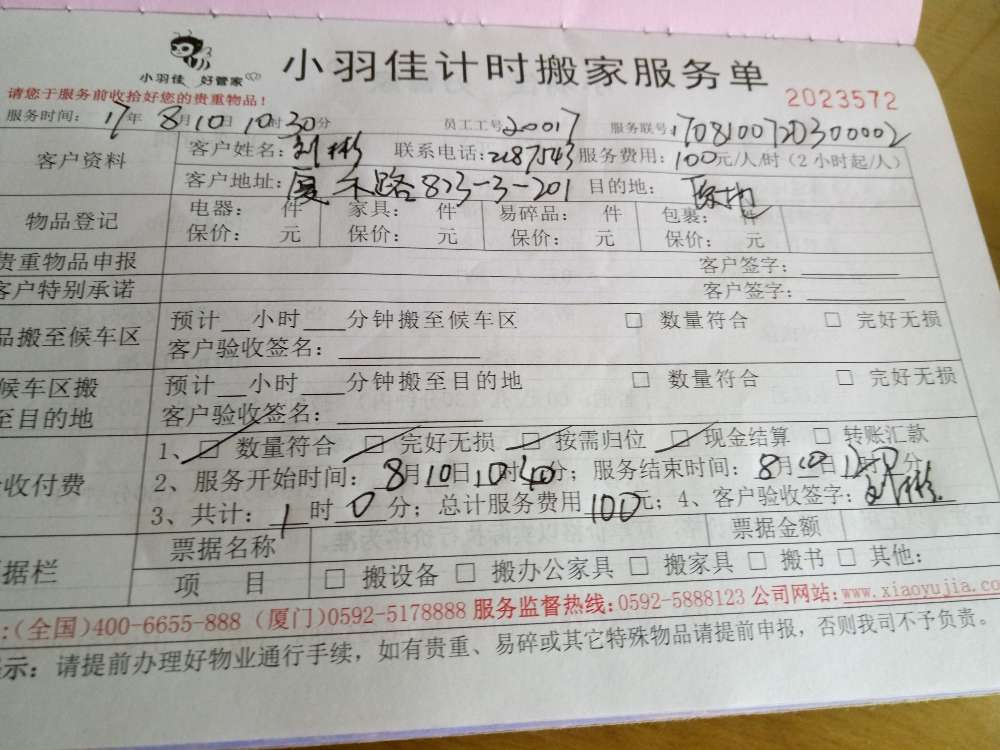 小羽佳 好管家
小羽佳计时搬家服务单
请您于服务前收拾好您的贵重物品!
2023572
服务时间: 17年 8月10日10时30分 员工工号20017 服务联号:170810072030002
客户资料
客户姓名:刘彬 联系电话:2187543 服务费用:100元/人/时(2小时起/人)
客户地址:厦禾路823-3-201 目的地:
物品登记
电器: 件 家具: 件 易碎品: 件 包裹: 件
保价: 元 保价: 元 保价: 元 保价: 元
贵重物品申报 客户签字:
客户特别承诺 客户签字:
品搬至候车区
预计 小时 分钟搬至候车区 □ 数量符合 □ 完好无损
客户验收签名:
候车区搬
至目的地
预计 小时 分钟搬至目的地 □ 数量符合 □ 完好无损
客户验收签名:
收付费
1、☑ 数量符合 ☑ 完好无损 ☑ 按需归位 ☑ 现金结算 □ 转账汇款
2、服务开始时间:8月10日10时40分;服务结束时间:8月10日 分
3、共计:1时0分;总计服务费用100元;4、客户验收签字:刘彬
据栏
票据名称 票据金额
项 目 □ 搬设备 □ 搬办公家具 □ 搬家具 □ 搬书 □ 其他:
:(全国)400-6655-888 (厦门)0592-5178888 服务监督热线:0592-5888123 公司网站:www.xiaoyujia.co
示:请提前办理好物业通行手续,如有贵重、易碎或其它特殊物品请提前申报,否则我司不予负责。